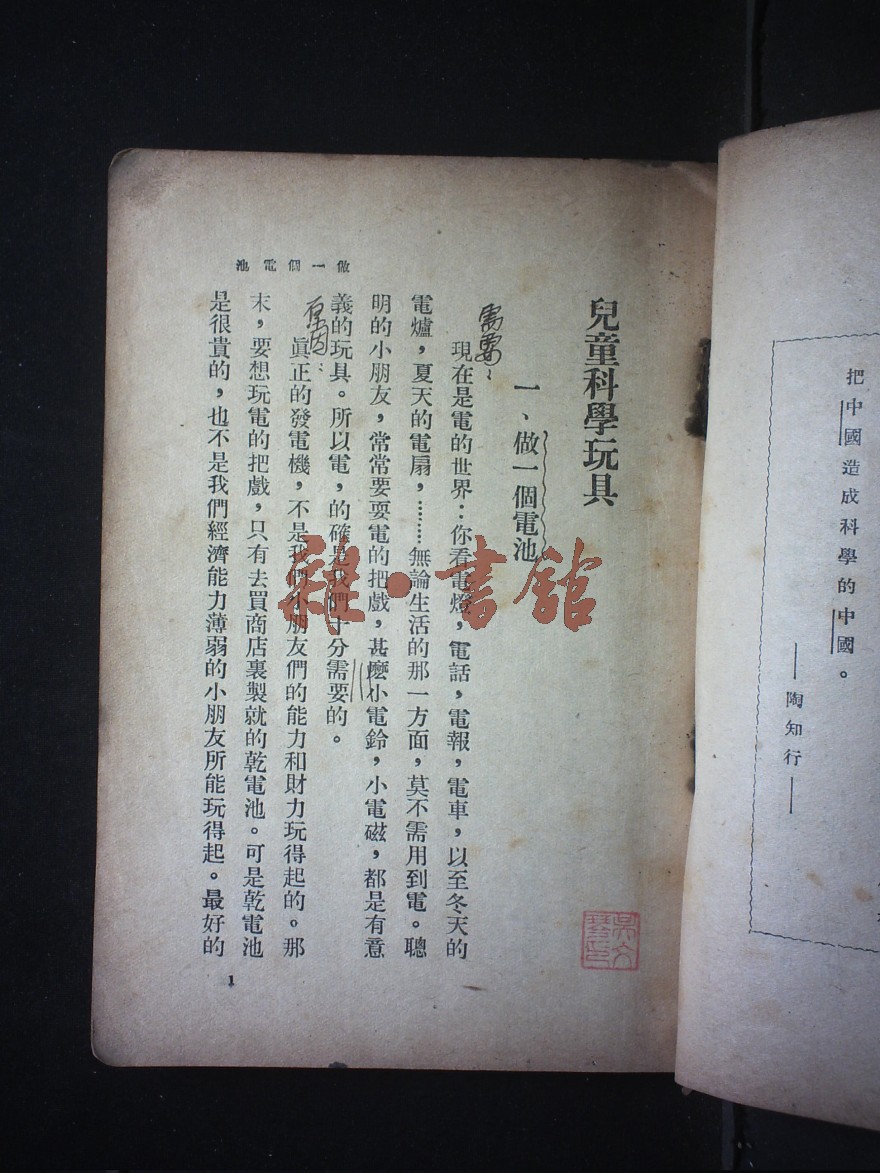 把中國造成科學的中國。
——陶知行——
兒童科學玩具
一、做一個電池
需要：
現在是電的世界：你看電燈，電話，電報，電車，以至冬天的
電爐，夏天的電扇，………無論生活的那一方面，莫不需用到電。聰
明的小朋友，常常要耍電的把戲，甚麼小電鈴，小電磁，都是有意
義的玩具。所以電，的確是我們十分需要的。
原因：
眞正的發電機，不是我們小朋友們的能力和財力玩得起的。那
末，要想玩電的把戲，只有去買商店裏製就的乾電池。可是乾電池
是很貴的，也不是我們經濟能力薄弱的小朋友所能玩得起。最好的
做一個電池
1
雜·書館